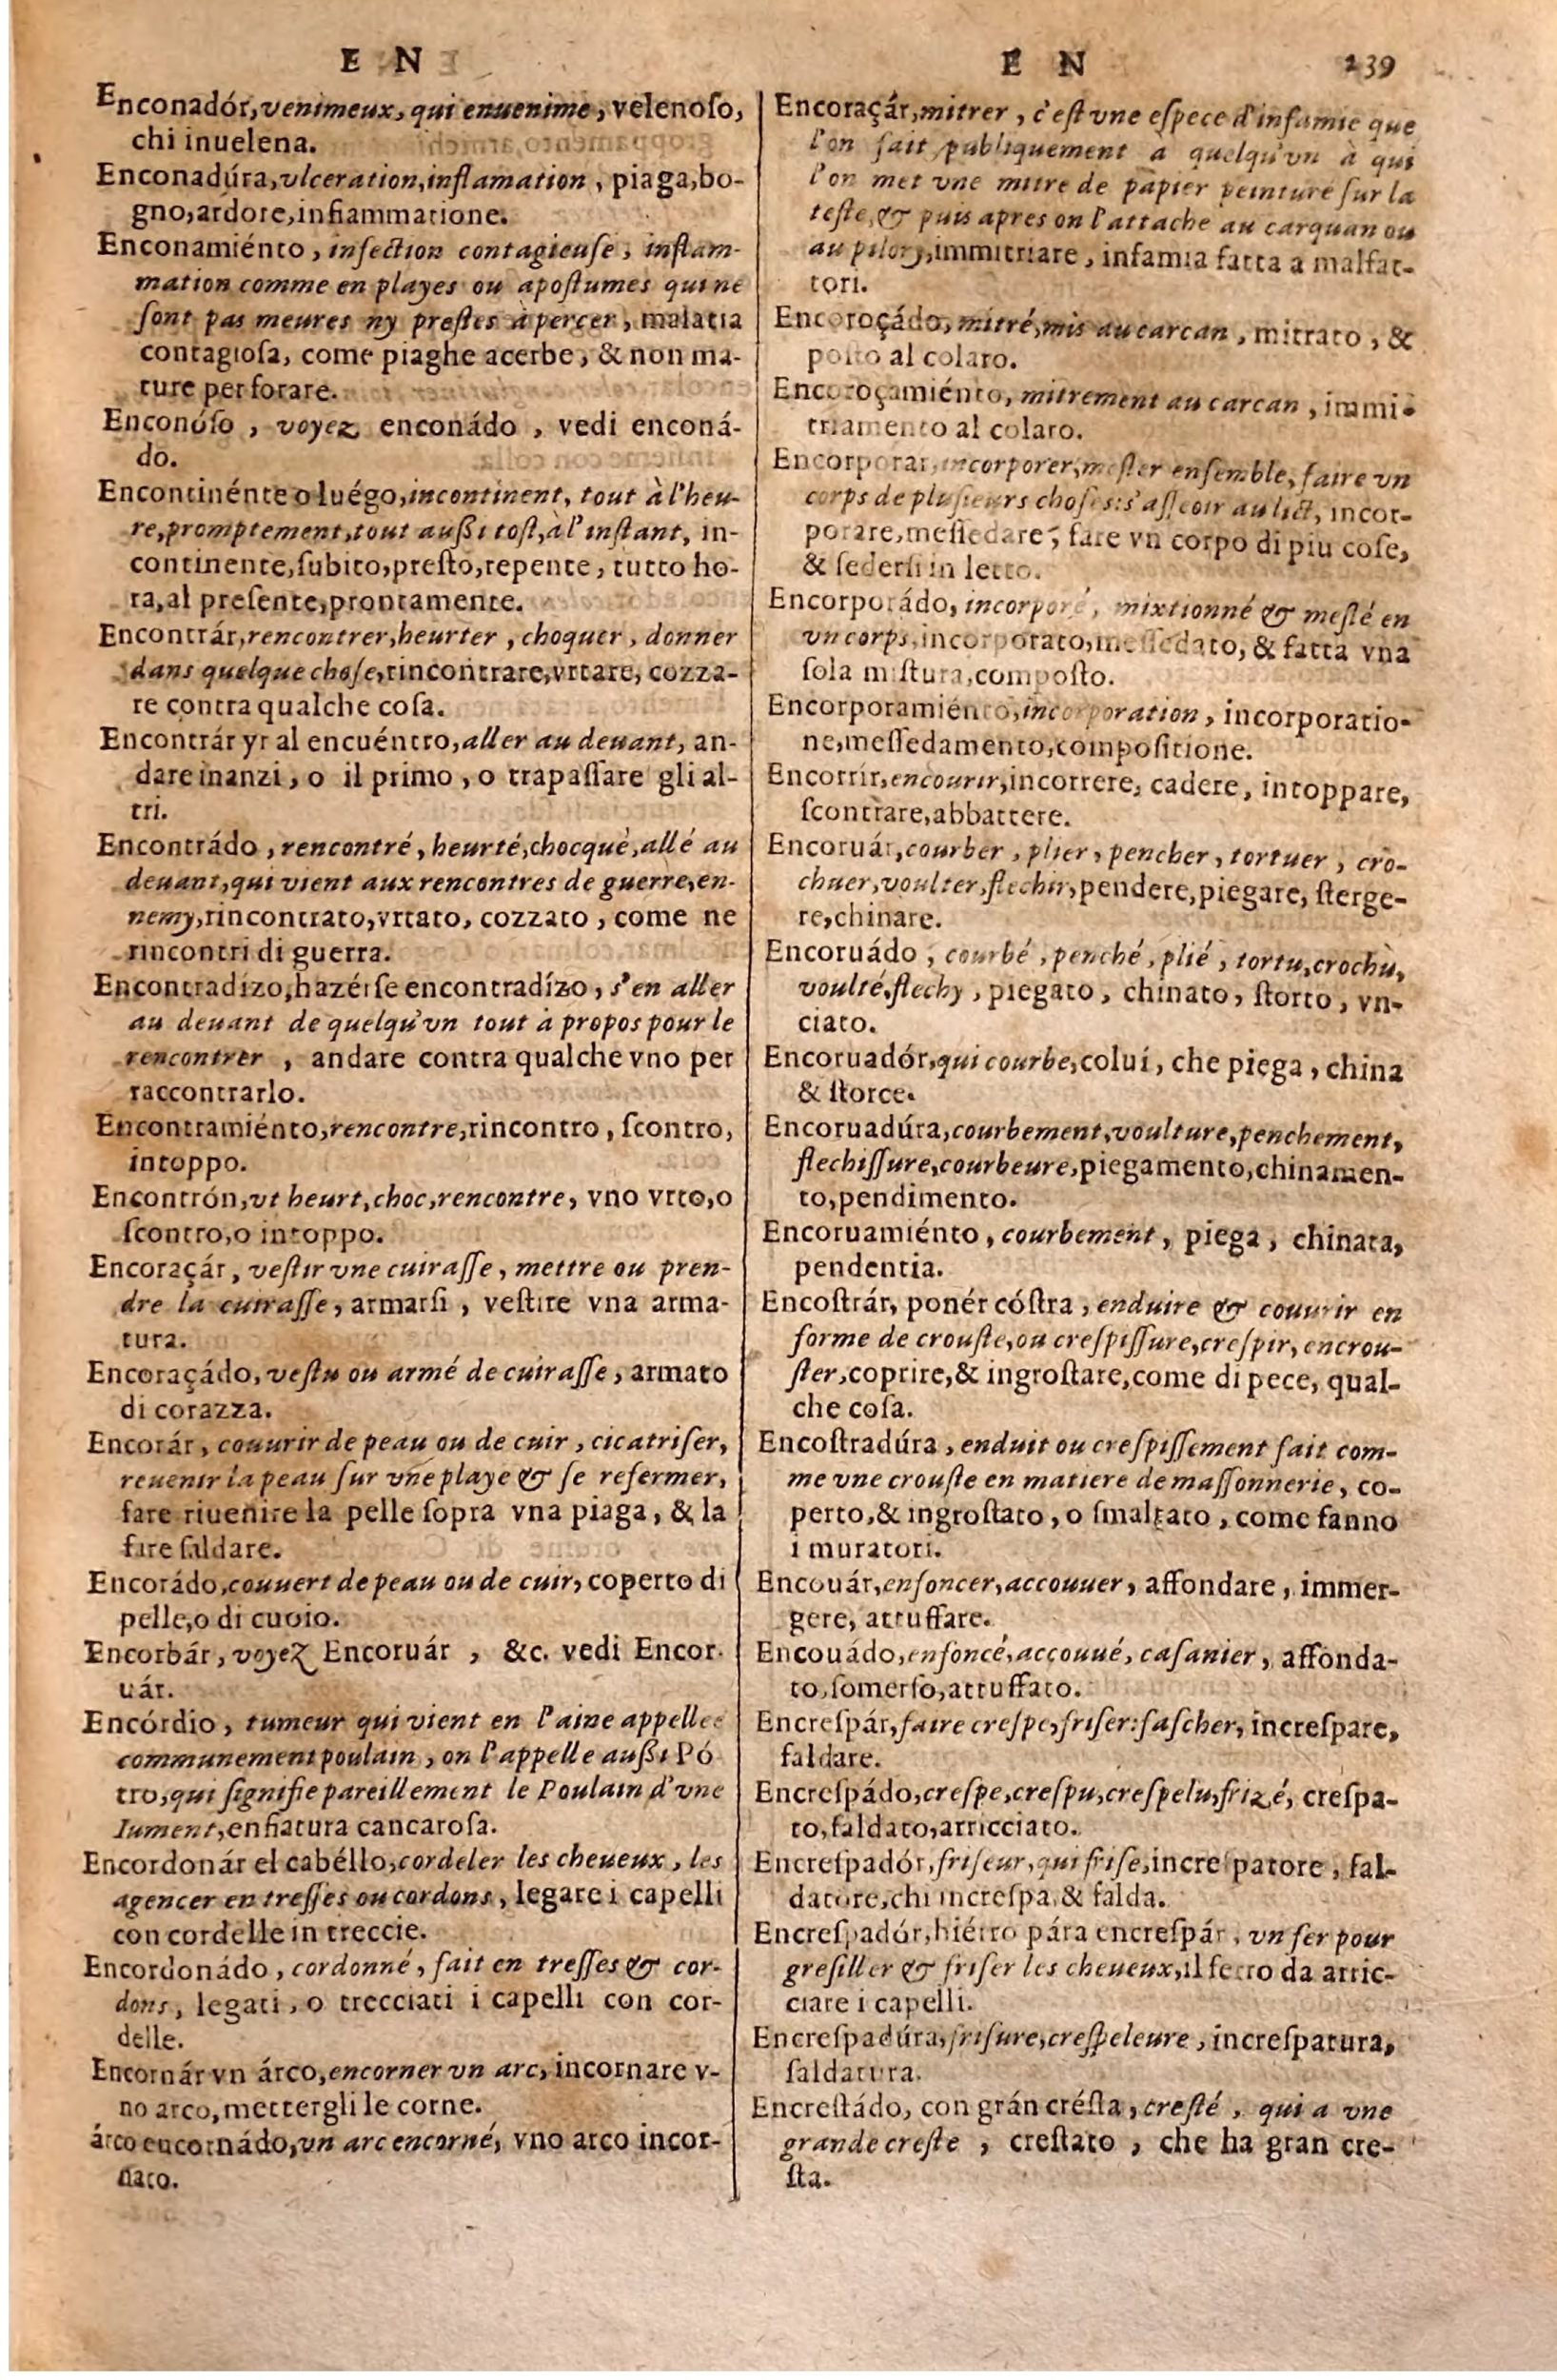 E N
Enconadór, venimeux, qui enuenime, velenoſo,
chi inuelena.
Enconadúra, vlceration, inflamation, piaga, bo-
gno, ardore, infiammatione.
Enconamiénto, infection contagieuſe, inflam-
mation comme en playes ou apoſtumes qui ne
ſont pas meures ny preſtes à percer, malatia
contagioſa, come piaghe acerbe, & non ma-
ture per forare.
Enconóſo, voyez enconádo, vedi enconá-
do.
Encontinénte o luégo, incontinent, tout à l'heu-
re, promptement, tout außi toſt, à l'inſtant, in-
continente, ſubito, preſto, repente, tutto ho-
ra, al preſente, prontamente.
Encontrár, rencontrer, heurter, choquer, donner
dans quelque choſe, rincontrare, vrtare, cozza-
re contra qualche coſa.
Encontrár yr al encuéntro, aller au deuant, an-
dare inanzi, o il primo, o trapaſſare gli al-
tri.
Encontrádo, rencontré, heurté, chocquè, allé au
deuant, qui vient aux rencontres de guerre, en-
nemy, rincontrato, vrtato, cozzato, come ne
rincontri di guerra.
Encontradizo, hazérſe encontradízo, s'en aller
au deuant de quelqu'vn tout à propos pour le
rencontrer, andare contra qualche vno per
raccontrarlo.
Encontramiénto, rencontre, rincontro, ſcontro,
intoppo.
Encontrón, vt heurt, choc, rencontre, vno vrto, o
ſcontro, o intoppo.
Encoraçár, veſtir vne cuiraſſe, mettre ou pren-
dre la cuiraſſe, armarſi, veſtire vna arma-
tura.
Encoraçádo, veſtu ou armé de cuiraſſe, armato
di corazza.
Encorár, couurir de peau ou de cuir, cicatriſer,
reuenir la peau ſur vne playe & ſe refermer,
fare riuenire la pelle ſopra vna piaga, & la
fare ſaldare.
Encorádo, couuert de peau ou de cuir, coperto di
pelle, o di cuoio.
Encorbár, voyez Encoruár, &c. vedi Encor-
uár.
Encórdio, tumeur qui vient en l'aine appellee
communement poulain, on l'appelle außi Pó
tro, qui ſignifie pareillement le Poulain d'vne
Iument, enfiatura cancaroſa.
Encordonár el cabéllo, cordeler les cheueux, les
agencer en treſſes ou cordons, legare i capelli
con cordelle in treccie.
Encordonádo, cordonné, fait en treſſes & cor-
dons, legati, o trecciati i capelli con cor-
delle.
Encornár vn árco, encorner vn arc, incornare v-
no arco, mettergli le corne.
árco encornádo, vn arc encorné, vno arco incor-
nato.
E N 239
Encoraçár, mitrer, c'eſt vne eſpece d'infamie que
l'on fait publiquement a quelqu'vn à qui
l'on met vne mitre de papier peinturé ſur la
teſte, & puis apres on l'attache au carquan ou
au pilory, immitriare, infamia fatta a malfat-
tori.
Encoroçádo, mitré, mis au carcan, mitrato, &
poſto al colaro.
Encoroçamiénto, mitrement au carcan, immi-
triamento al colaro.
Encorporar, incorporer, meſler enſemble, faire vn
corps de pluſieurs choſes: s'aſſeoir au lict, incor-
porare, meſſedare, fare vn corpo di piu coſe,
& ſederſi in letto.
Encorporádo, incorporé, mixtionné & meſlé en
vn corps, incorporato, meſſedato, & fatta vna
ſola miſtura, compoſto.
Encorporamiénto, incorporation, incorporatio-
ne, meſſedamento, compoſitione.
Encorrir, encourir, incorrere, cadere, intoppare,
ſcontrare, abbattere.
Encoruár, courber, plier, pencher, tortuer, cro-
chuer, voulter, flechir, pendere, piegare, ſterge-
re, chinare.
Encoruádo, courbé, penché, plié, tortu, crochù,
voulté, flechy, piegato, chinato, ſtorto, vn-
ciato.
Encoruadór, qui courbe, colui, che piega, china
& ſtorce.
Encoruadúra, courbement, voulture, penchement,
flechiſſure, courbeure, piegamento, chinamen-
to, pendimento.
Encoruamiénto, courbement, piega, chinata,
pendentia.
Encoſtrár, ponér cóſtra, enduire & couurir en
forme de crouſte, ou creſpiſſure, creſpir, encrou-
ſter, coprire, & ingroſtare, come di pece, qual-
che coſa.
Encoſtradúra, enduit ou creſpiſſement fait com-
me vne crouſte en matiere de maſſonnerie, co-
perto, & ingroſtato, o ſmaltato, come fanno
i muratori.
Encouár, enfoncer, accouuer, affondare, immer-
gere, attuffare.
Encouádo, enfoncé, accouué, caſanier, affonda-
to, ſomerſo, attuffato.
Encreſpár, faire creſpe, friſer: faſcher, increſpare,
faldare.
Encreſpádo, creſpe, creſpu, creſpelu, frizé, creſpa-
to, faldato, arricciato.
Encreſpadór, friſeur, qui friſe, increſpatore, fal-
datore, chi increſpa & falda.
Encreſpadór, hiérro pára encreſpár, vn fer pour
greſiller & friſer les cheueux, il ferro da arric-
ciare i capelli.
Encreſpadúra, friſure, creſpeleure, increſpatura,
faldatura.
Encreſtádo, con grán créſta, creſté, qui a vne
grande creſte, creſtato, che ha gran cre-
ſta.